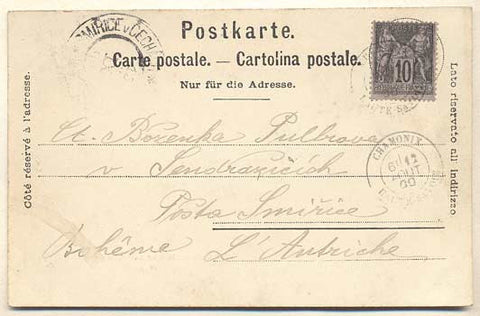 Postkarte.
SMIŘICE v ČECHÁCH
Carte postale. — Cartolina postale.
Nur für die Adresse.
10
Côté réservé à l'adresse.
Lato riservato all indirizzo
CHAMONIX
12
AOUT
00
Ct. Bozenka Pulbrova
v Sendražicích
Pošta Smiřice
Bohême L'Autriche